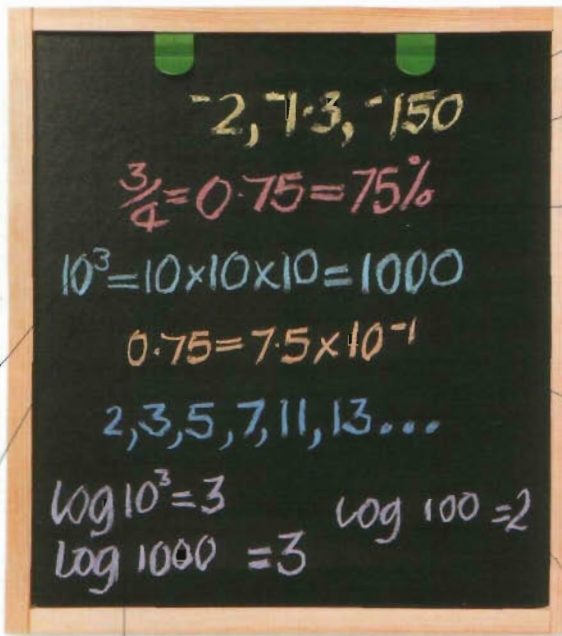 ⁻2, ⁻1·3, ⁻150
3/4=0·75=75%
10³=10×10×10=1000
0·75=7·5×10⁻¹
2,3,5,7,11,13...
log 10³=3
log 100=2
log 1000 =3